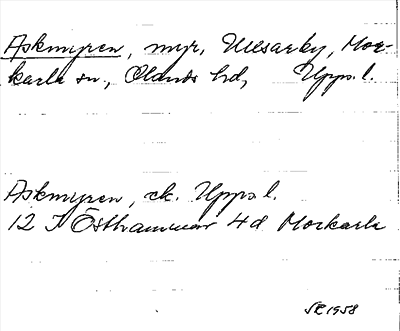 Askmyren, myr, Ulvsarby, Mor-
karla sn., Olands hd, Upps. l.
Askmyren, ek. Upps l.
12 I Östhammar 4d Morkarla
SR 1958